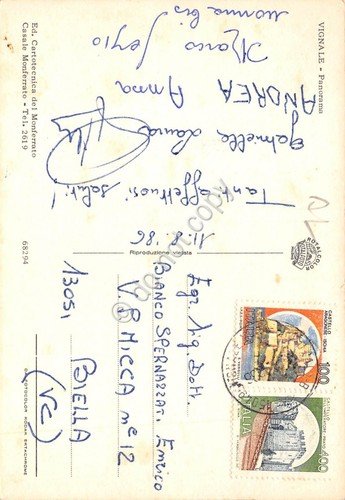 VIGNALE - Panorama
11.8.86
Tanti affettuosi saluti!
Gabriella Laura
ANDREA Anna
Marco Sergio
nonna bis
Ed. Cartotecnica del Monferrato
Casale Monferrato - Tel. 2619
68294
Riproduzione vietata
ROTALCOLOR
Egr. Sig. Dott.
BIANCO SPERNAZZATI Enrico
V. P. MICCA n° 12
13051 BIELLA
(VC)
CASTELLO
ARAGONESE ISCHIA
100
ITALIA
400
do not copy